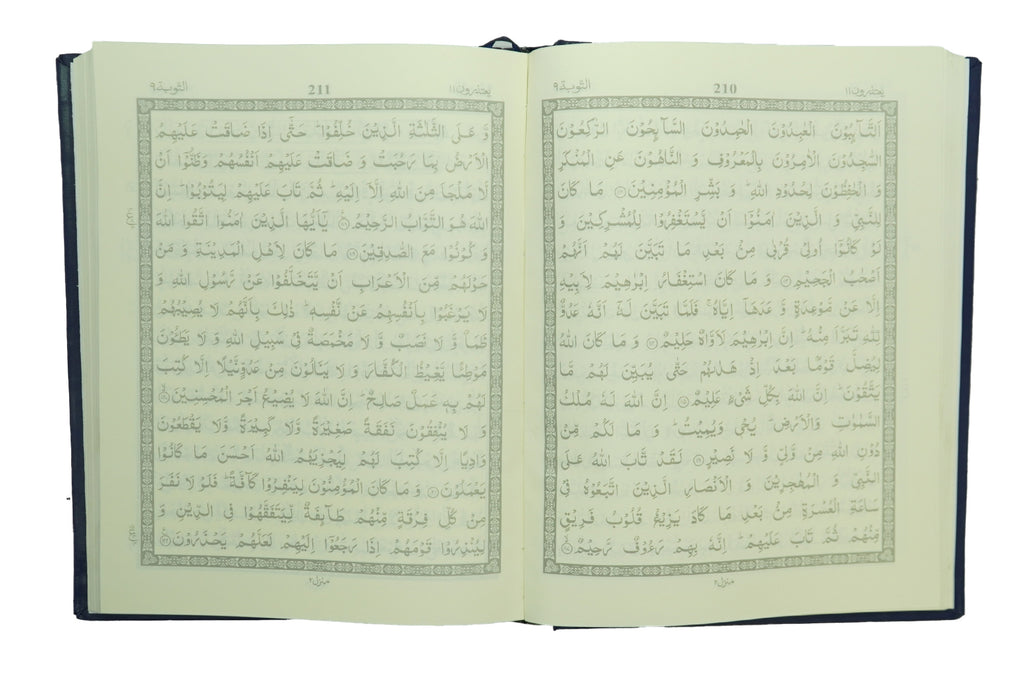 يعتذرون ۱۱
210
التوبة ۹
اَلتَّآىِٕبُوْنَ الْعٰبِدُوْنَ الْحٰمِدُوْنَ السَّآىِٕحُوْنَ الرّٰكِعُوْنَ
السّٰجِدُوْنَ الْاٰمِرُوْنَ بِالْمَعْرُوْفِ وَ النَّاهُوْنَ عَنِ الْمُنْكَرِ
وَ الْحٰفِظُوْنَ لِحُدُوْدِ اللّٰهِؕ وَ بَشِّرِ الْمُؤْمِنِيْنَ۝ مَا كَانَ
لِلنَّبِيِّ وَ الَّذِيْنَ اٰمَنُوْۤا اَنْ يَّسْتَغْفِرُوْا لِلْمُشْرِكِيْنَ وَ
لَوْ كَانُوْۤا اُولِيْ قُرْبٰى مِنْۢ بَعْدِ مَا تَبَيَّنَ لَهُمْ اَنَّهُمْ
اَصْحٰبُ الْجَحِيْمِ۝ وَ مَا كَانَ اسْتِغْفَارُ اِبْرٰهِيْمَ لِاَبِيْهِ
اِلَّا عَنْ مَّوْعِدَةٍ وَّ عَدَهَاۤ اِيَّاهُۚ فَلَمَّا تَبَيَّنَ لَهٗۤ اَنَّهٗ عَدُوٌّ
لِّلّٰهِ تَبَرَّاَ مِنْهُؕ اِنَّ اِبْرٰهِيْمَ لَاَوَّاهٌ حَلِيْمٌ۝ وَ مَا كَانَ اللّٰهُ
لِيُضِلَّ قَوْمًۢا بَعْدَ اِذْ هَدٰىهُمْ حَتّٰى يُبَيِّنَ لَهُمْ مَّا
يَتَّقُوْنَؕ اِنَّ اللّٰهَ بِكُلِّ شَيْءٍ عَلِيْمٌ۝ اِنَّ اللّٰهَ لَهٗ مُلْكُ
السَّمٰوٰتِ وَالْاَرْضِؕ يُحْيٖ وَيُمِيْتُؕ وَ مَا لَكُمْ مِّنْ
دُوْنِ اللّٰهِ مِنْ وَّلِيٍّ وَّ لَا نَصِيْرٍ۝ لَقَدْ تَّابَ اللّٰهُ عَلَى
النَّبِيِّ وَ الْمُهٰجِرِيْنَ وَ الْاَنْصَارِ الَّذِيْنَ اتَّبَعُوْهُ فِيْ
سَاعَةِ الْعُسْرَةِ مِنْۢ بَعْدِ مَا كَادَ يَزِيْغُ قُلُوْبُ فَرِيْقٍ
مِّنْهُمْ ثُمَّ تَابَ عَلَيْهِمْؕ اِنَّهٗ بِهِمْ رَءُوْفٌ رَّحِيْمٌ۝
منزل ۲
يعتذرون ۱۱
211
التوبة ۹
وَّ عَلَى الثَّلٰثَةِ الَّذِيْنَ خُلِّفُوْاؕ حَتّٰۤى اِذَا ضَاقَتْ عَلَيْهِمُ
الْاَرْضُ بِمَا رَحُبَتْ وَ ضَاقَتْ عَلَيْهِمْ اَنْفُسُهُمْ وَظَنُّوْۤا اَنْ
لَّا مَلْجَاَ مِنَ اللّٰهِ اِلَّاۤ اِلَيْهِؕ ثُمَّ تَابَ عَلَيْهِمْ لِيَتُوْبُوْاؕ اِنَّ
اللّٰهَ هُوَ التَّوَّابُ الرَّحِيْمُ۝ يٰۤاَيُّهَا الَّذِيْنَ اٰمَنُوا اتَّقُوا اللّٰهَ
وَ كُوْنُوْا مَعَ الصّٰدِقِيْنَ۝ مَا كَانَ لِاَهْلِ الْمَدِيْنَةِ وَ مَنْ
حَوْلَهُمْ مِّنَ الْاَعْرَابِ اَنْ يَّتَخَلَّفُوْا عَنْ رَّسُوْلِ اللّٰهِ وَ
لَا يَرْغَبُوْا بِاَنْفُسِهِمْ عَنْ نَّفْسِهٖؕ ذٰلِكَ بِاَنَّهُمْ لَا يُصِيْبُهُمْ
ظَمَاٌ وَّ لَا نَصَبٌ وَّ لَا مَخْمَصَةٌ فِيْ سَبِيْلِ اللّٰهِ وَ لَا يَطَـُٔوْنَ
مَوْطِئًا يَّغِيْظُ الْكُفَّارَ وَ لَا يَنَالُوْنَ مِنْ عَدُوٍّ نَّيْلًا اِلَّا كُتِبَ
لَهُمْ بِهٖ عَمَلٌ صَالِحٌؕ اِنَّ اللّٰهَ لَا يُضِيْعُ اَجْرَ الْمُحْسِنِيْنَ۝
وَ لَا يُنْفِقُوْنَ نَفَقَةً صَغِيْرَةً وَّلَا كَبِيْرَةً وَّلَا يَقْطَعُوْنَ
وَادِيًا اِلَّا كُتِبَ لَهُمْ لِيَجْزِيَهُمُ اللّٰهُ اَحْسَنَ مَا كَانُوْا
يَعْمَلُوْنَ۝ وَ مَا كَانَ الْمُؤْمِنُوْنَ لِيَنْفِرُوْا كَآفَّةًؕ فَلَوْ لَا نَفَرَ
مِنْ كُلِّ فِرْقَةٍ مِّنْهُمْ طَآىِٕفَةٌ لِّيَتَفَقَّهُوْا فِي الدِّيْنِ وَ
لِيُنْذِرُوْا قَوْمَهُمْ اِذَا رَجَعُوْۤا اِلَيْهِمْ لَعَلَّهُمْ يَحْذَرُوْنَ۝
منزل ۲